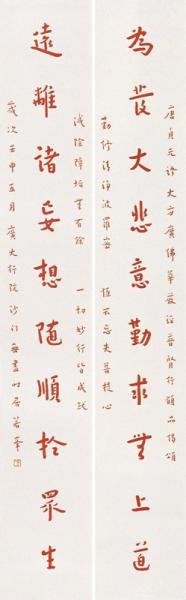 唐貞元譯大方廣佛華嚴經普賢行願品偈頌
為發大悲意勤求無上道
勤修清淨波羅蜜 恆不忘失菩提心
滅除障垢無有餘 一切妙行皆成就
遠離諸妄想隨順於眾生
歲次壬申五月廣大行院沙門無盡時居